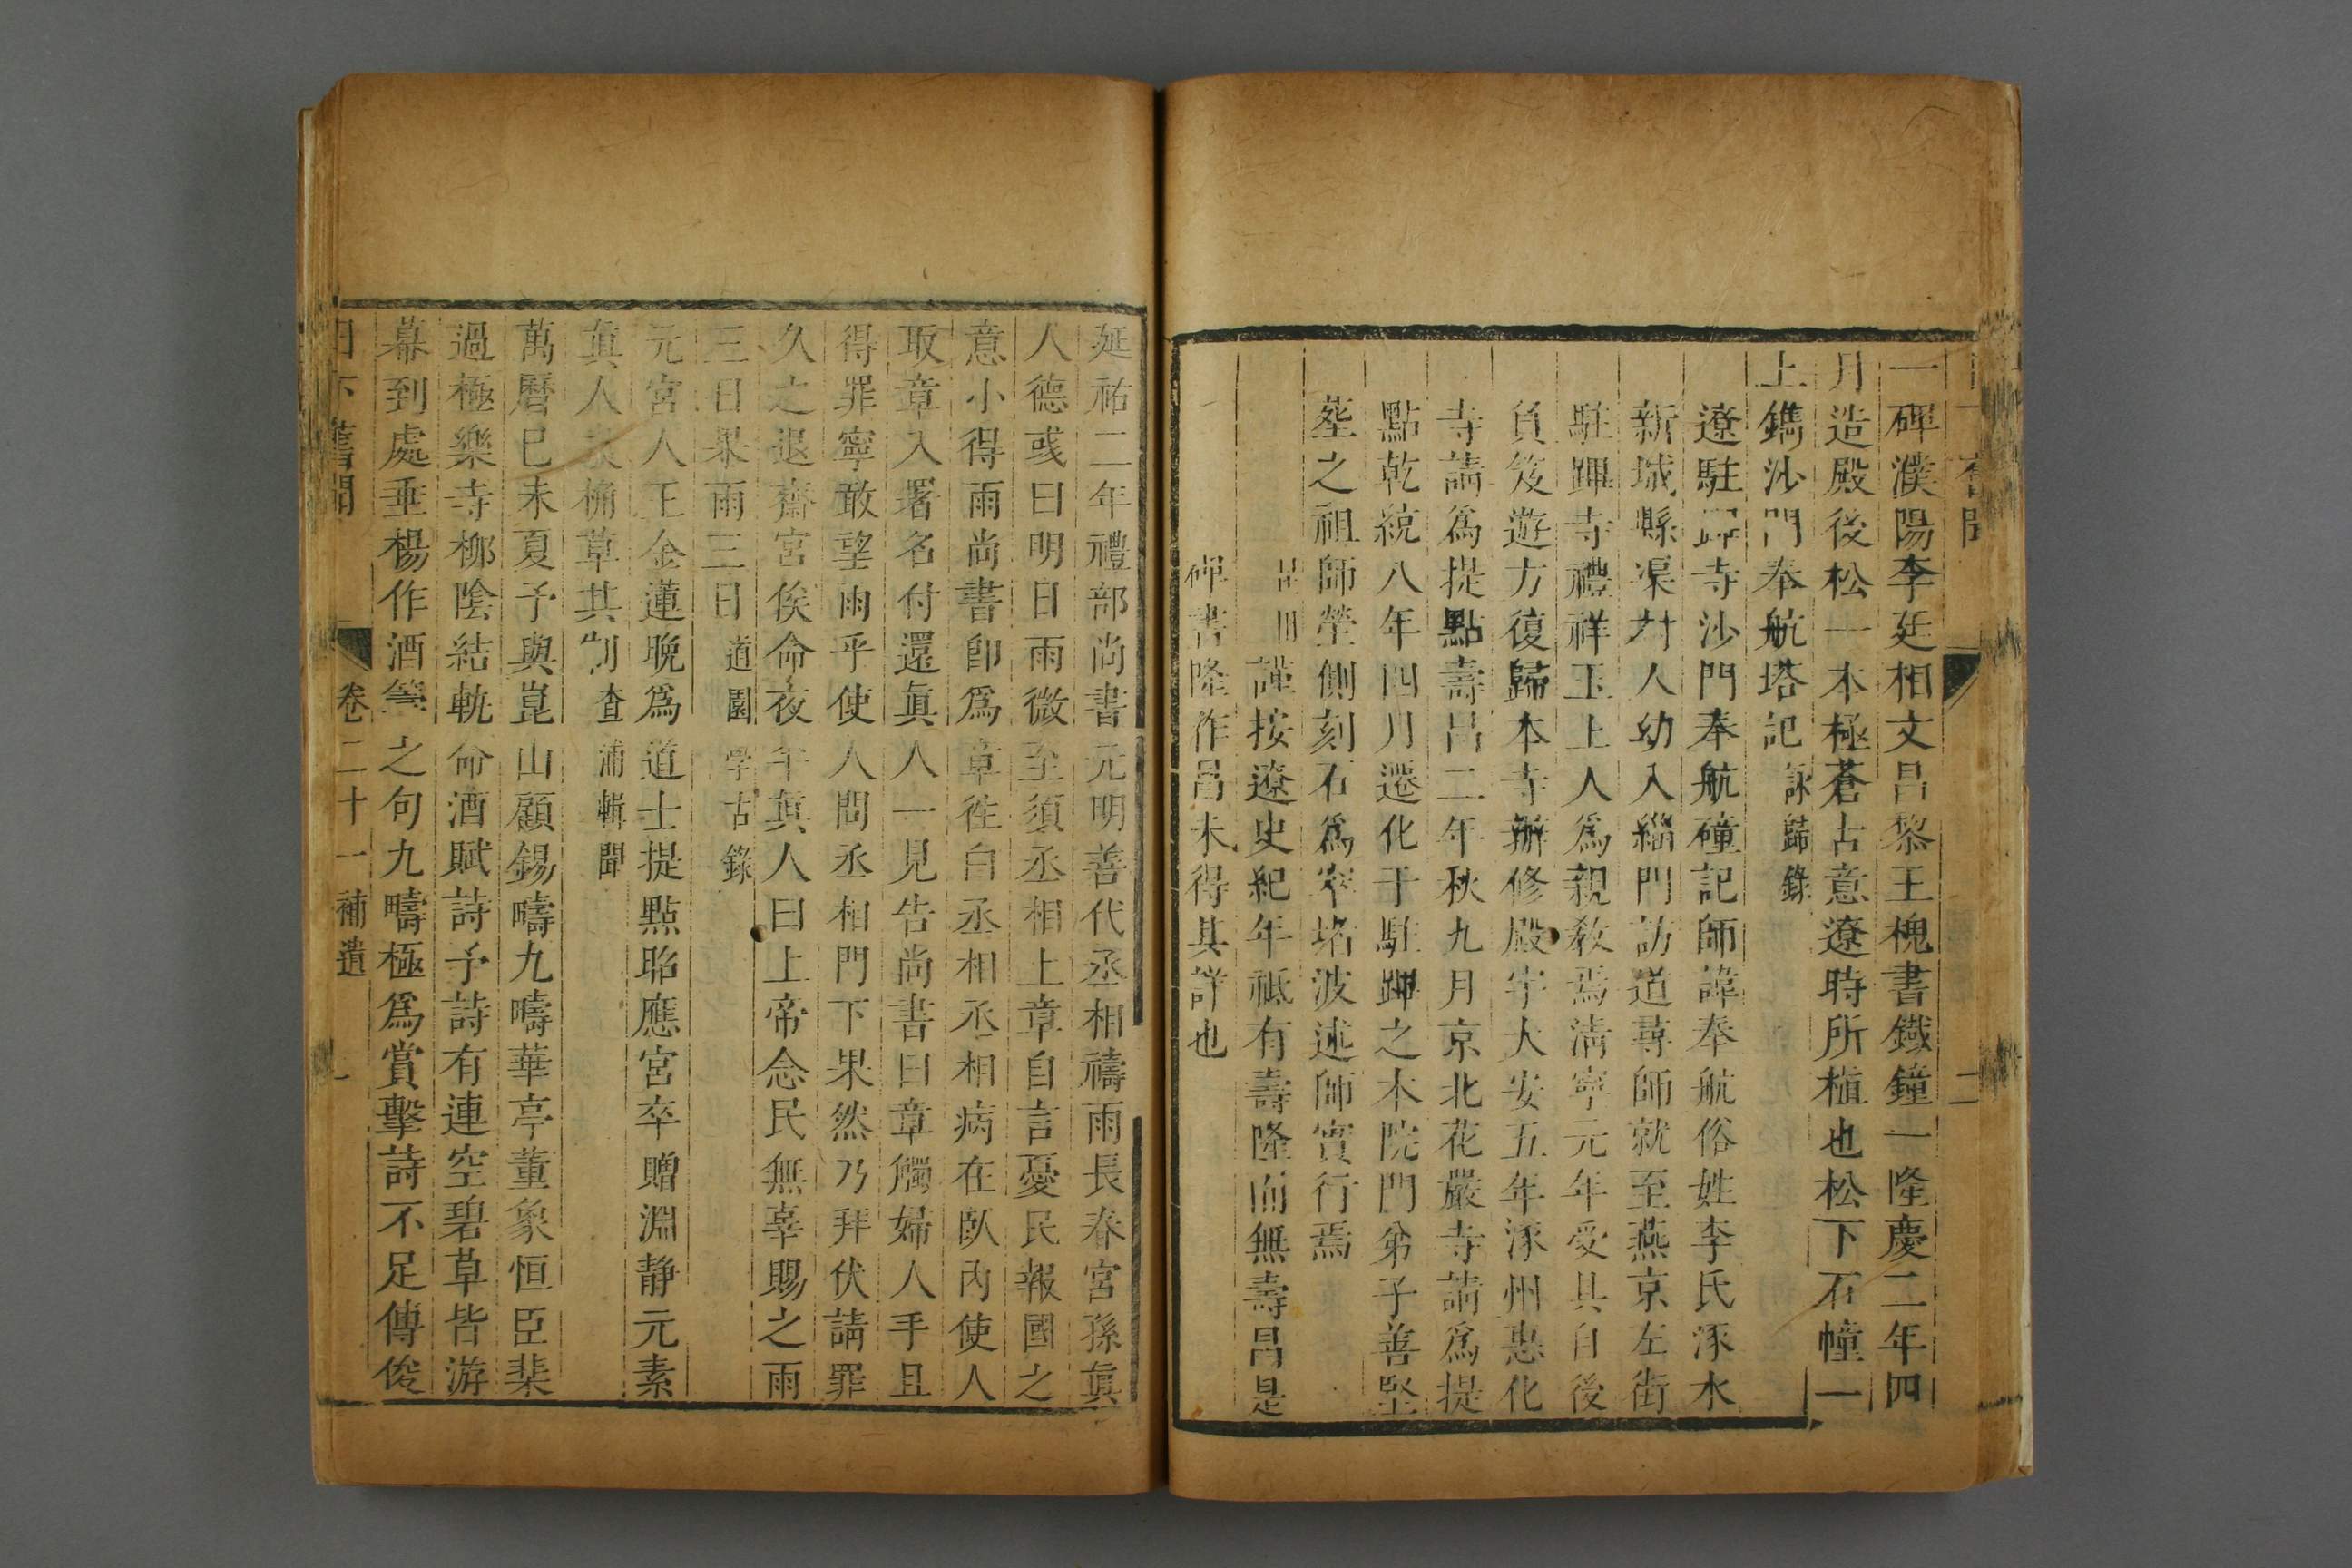 一碑濮陽李廷相文昌黎王槐書鐵鐘一隆慶二年四
月造殿後松一本極蒼古意遼時所植也松下石幢一
上鐫沙門奉航塔記 詠歸錄
遼駐蹕寺沙門奉航碑記師諱奉航俗姓李氏涿水
新城縣渠村人幼入緇門訪道尋師就至燕京左街
駐蹕寺禮祥玉上人爲親教焉清寧元年受具自後
負笈遊方復歸本寺辦修殿宇大安五年涿州惠化
寺請爲提點壽昌二年秋九月京北花嚴寺請爲提
點乾統八年四月遷化于駐蹕之本院門弟子善堅
葬之祖師塋側刻石爲窣堵波述師實行焉
謹按遼史紀年祗有壽隆而無壽昌是
碑書隆作昌未得其詳也
延祐二年禮部尚書元明善代丞相禱雨長春宮孫眞
人德彧曰明日雨微至須丞相上章自言憂民報國之
意小得雨尚書卽爲章徃白丞相丞相病在臥內使人
取章入署名付還眞人一見告尚書曰章觸婦人手且
得罪寧敢望雨乎使人問丞相門下果然乃拜伏請罪
久之退齋宮俟命夜半眞人曰上帝念民無辜賜之雨
三日果雨三日 道園學古錄
元宮人王金蓮晚爲道士提點昭應宮卒贈淵静元素
眞人袁桷草其制 查浦輯聞
萬曆巳未夏予與崑山顧錫疇九疇華亭董象恒臣棐
過極樂寺柳陰結軌命酒賦詩予詩有連空碧草皆游
幕到處垂楊作酒 之句九疇極爲賞擊詩不足傳俊
日下舊聞 卷二十一補遺 一